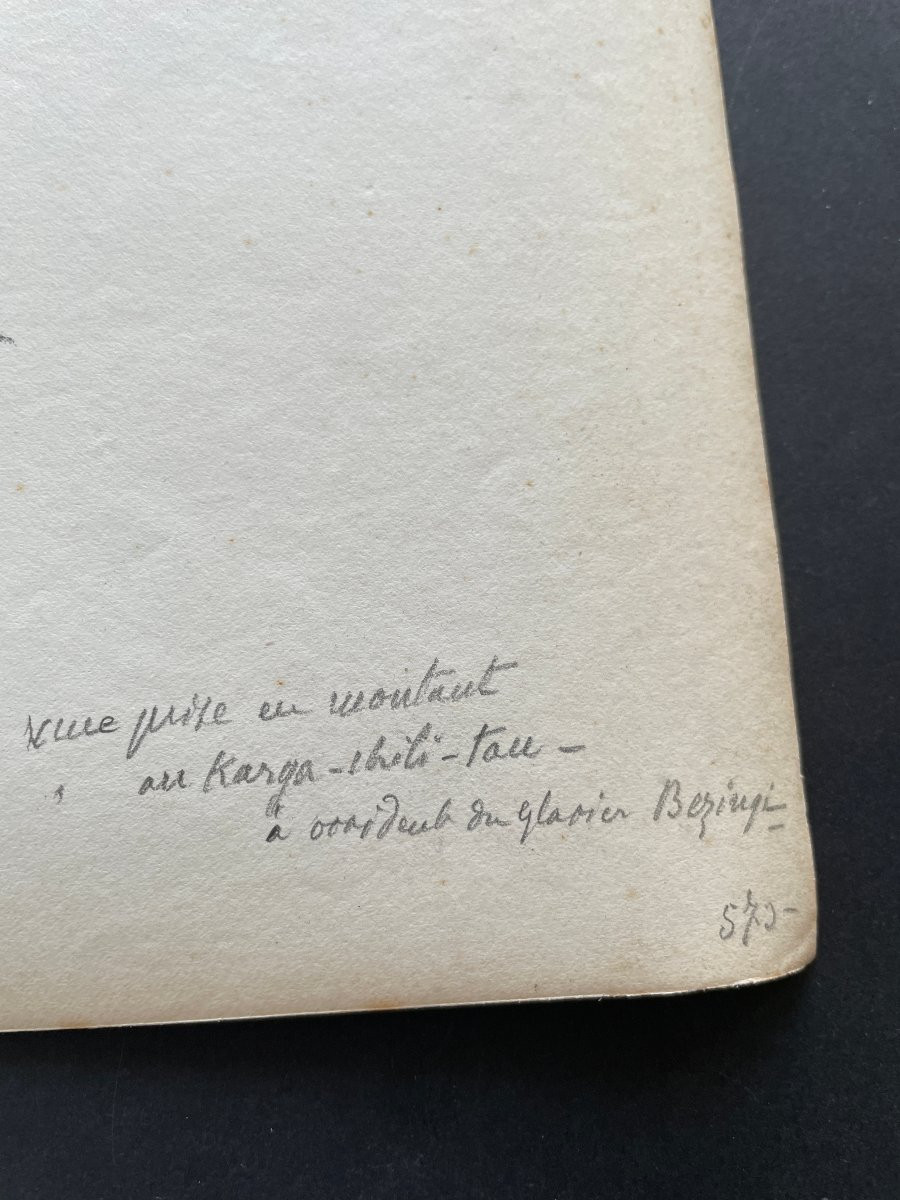 prise en montant
au Karga-shili-tau -
à occident du glacier Bezingi -
573-